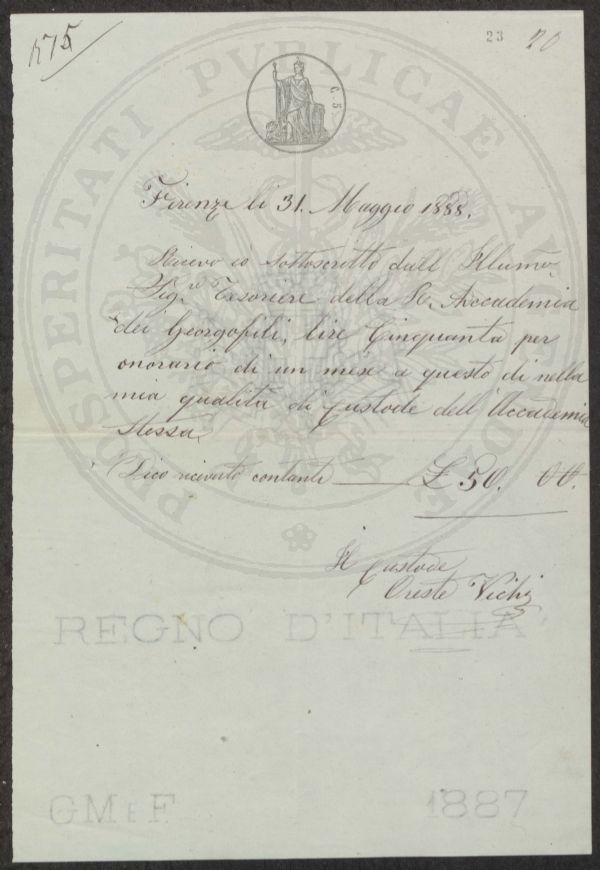 175
23 20
C. 5.
Firenze li 31. Maggio 1888.
Ricevo io sottoscritto dall' Illumo.
Sig.r Tesoriere della R. Accademia
dei Georgofili, lire Cinquanta per
onorario di un mese a questo dì nella
mia qualità di Custode dell'Accademia
stessa.
Dico ricevuto contanti — £ 50. 00.
Il Custode
Oreste Vichi
REGNO D'ITALIA
GM E F. 1887
PROSPERITATI PVBLICAE AVGENDAE